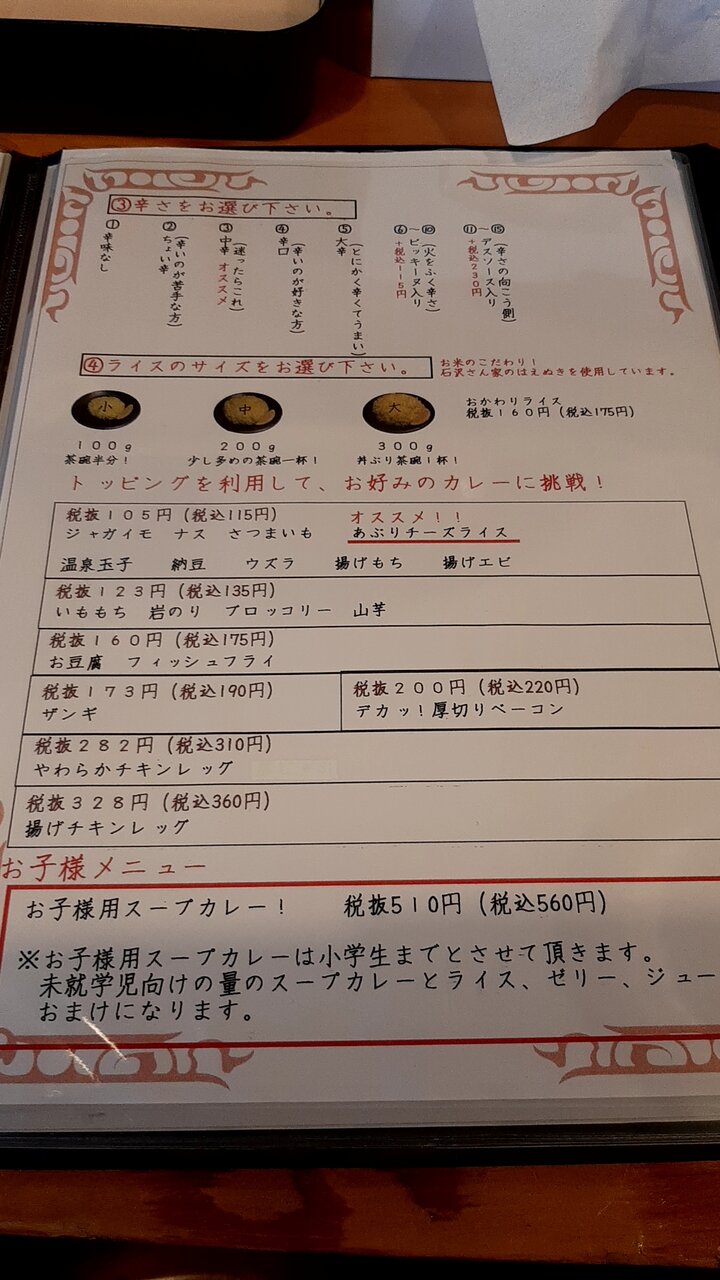 ③辛さをお選び下さい。
①
辛味なし
②
ちょい辛
(辛いのが苦手な方)
③
中辛 オススメ
(迷ったらこれ)
④
辛口
(辛いのが好きな方)
⑤
大辛
(とにかく辛くてうまい)
⑥～⑩
(火をふく辛さ)
ピッキーヌ入り
+税込115円
⑪～⑮
(辛さの向こう側)
デスソース入り
+税込230円
④ライスのサイズをお選び下さい。
お米のこだわり!
石沢さん家のはえぬきを使用しています。
小
中
大
おかわりライス
税抜160円(税込175円)
100g
200g
300g
茶碗半分!
少し多めの茶碗一杯!
丼ぶり茶碗1杯!
トッピングを利用して、お好みのカレーに挑戦!
税抜105円(税込115円) オススメ!!
ジャガイモ ナス さつまいも あぶりチーズライス
温泉玉子 納豆 ウズラ 揚げもち 揚げエビ
税抜123円(税込135円)
いももち 岩のり ブロッコリー 山芋
税抜160円(税込175円)
お豆腐 フィッシュフライ
税抜173円(税込190円)
ザンギ
税抜200円(税込220円)
デカッ!厚切りベーコン
税抜282円(税込310円)
やわらかチキンレッグ
税抜328円(税込360円)
揚げチキンレッグ
お子様メニュー
お子様用スープカレー! 税抜510円(税込560円)
※お子様用スープカレーは小学生までとさせて頂きます。
未就学児向けの量のスープカレーとライス、ゼリー、ジュー
おまけになります。